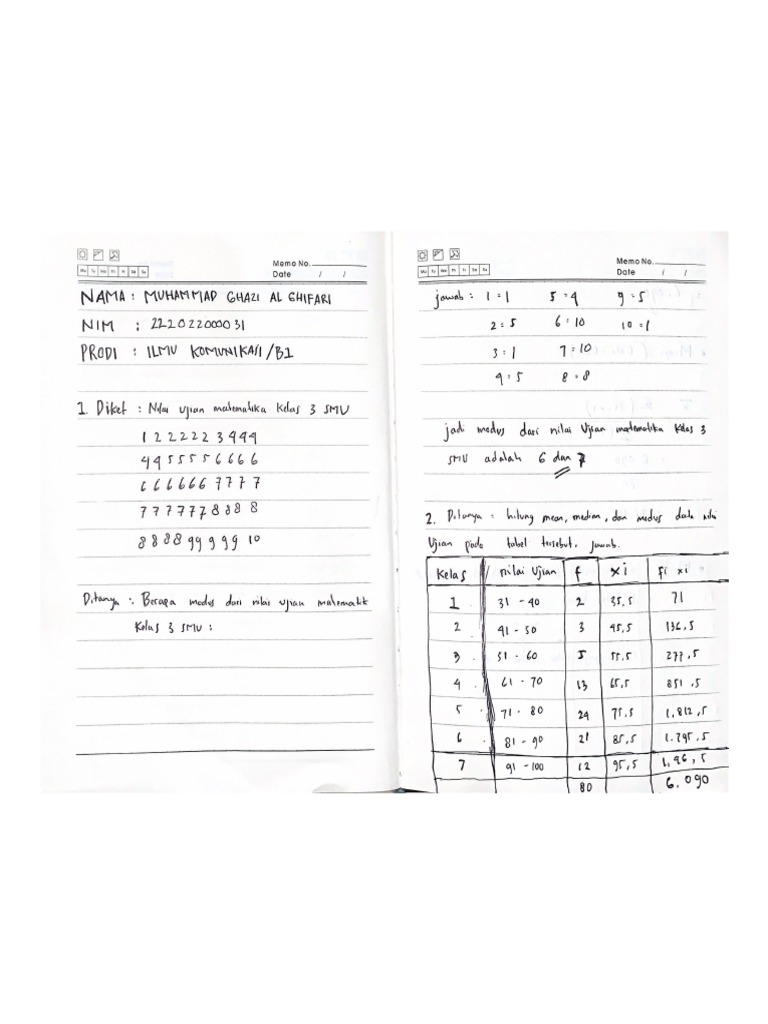 Mo Tu We Th Fr Sa Su
Memo No.
Date / /
NAMA : MUHAMMAD GHAZI AL GHIFARI
NIM : 2220220000 31
PRODI : ILMU KOMUNIKASI /B1
1. Diket : Nilai Ujian matematika Kelas 3 SMU
1 2 2 2 2 2 3 4 4 4
4 4 5 5 5 5 6 6 6 6
6 6 6 6 6 6 7 7 7 7
7 7 7 7 7 7 8 8 8 8
8 8 8 8 9 9 9 9 9 10
Ditanya : Berapa modus dari nilai ujian matematik
Kelas 3 SMU :
Mo Tu We Th Fr Sa Su
Memo No.
Date / /
jawab : 1 = 1 5 = 4 9 = 5
2 = 5 6 = 10 10 = 1
3 = 1 7 = 10
4 = 5 8 = 8
jadi modus dari nilai Ujian matematika Kelas 3
SMU adalah 6 dan 7
2. Ditanya : hitung mean, median, dan modus data nilai
Ujian pada tabel tersebut. jawab.
Kelas nilai Ujian f xi fi xi
1 31 - 40 2 35,5 71
2 41 - 50 3 45,5 136,5
3 51 - 60 5 55.5 277,5
4 61 - 70 13 65,5 851,5
5 71 - 80 24 75,5 1.812,5
6 81 - 90 21 85,5 1.795,5
7 91 - 100 12 95,5 1,46,5
80 6.090